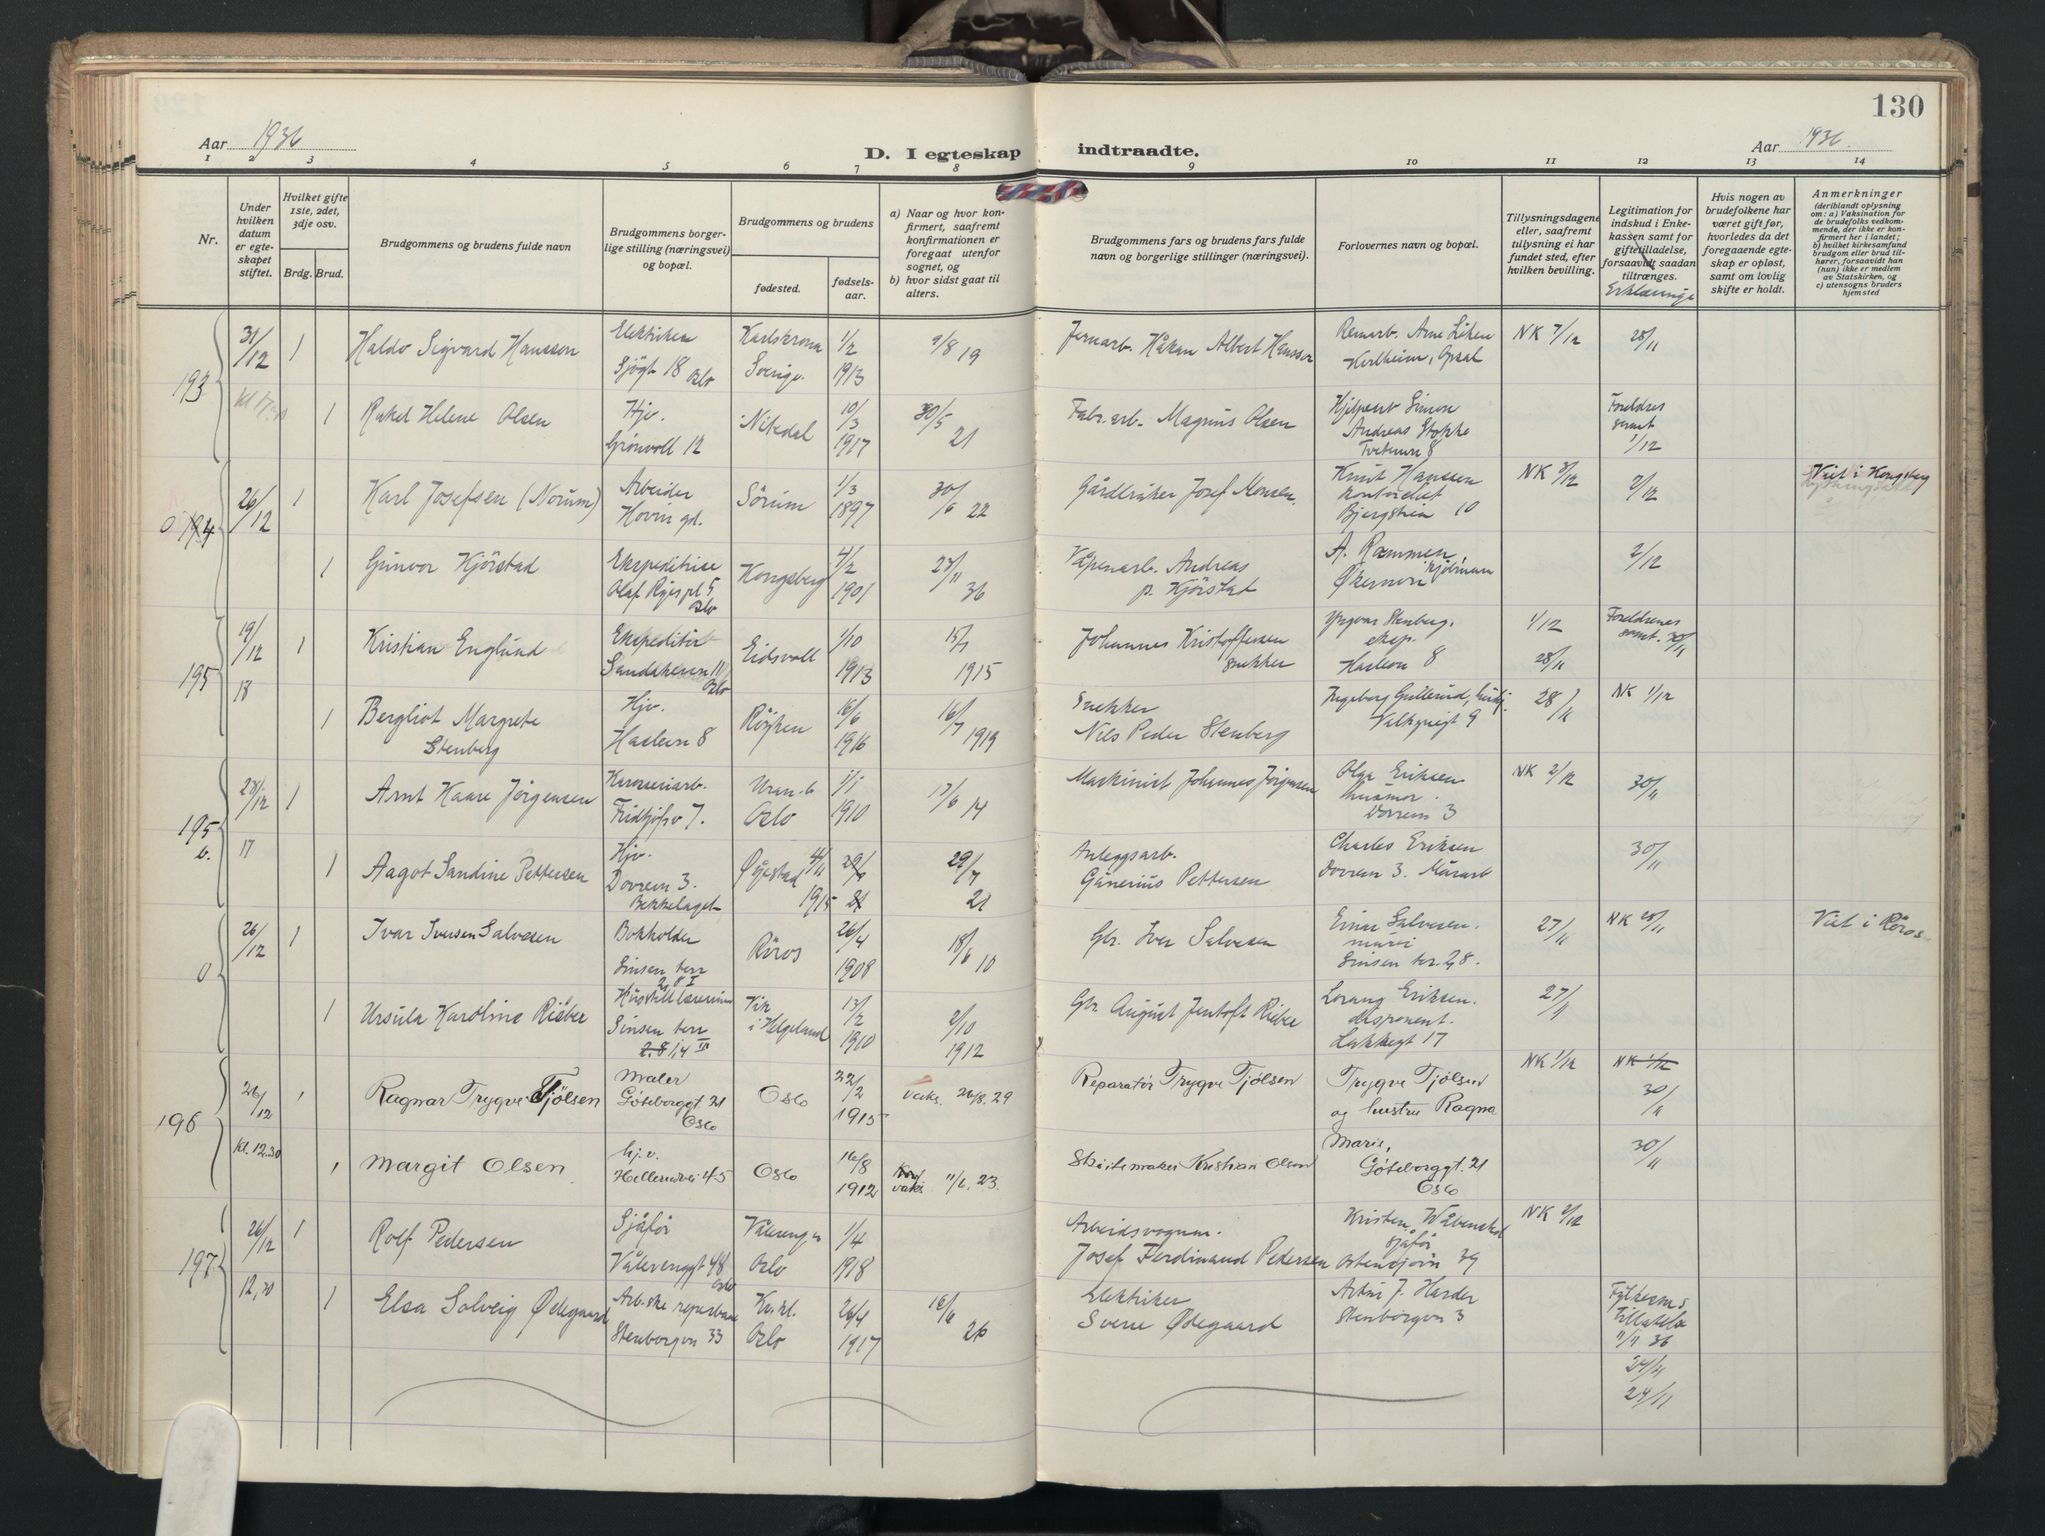 130
Aar 1936
D. I egteskap indtraadte.
Aar 1936.
1 2 3 4 5 6 7 8 9 10 11 12 13 14
Nr.
Under hvilken datum er egteskapet stiftet.
Hvilket gifte 1ste, 2det, 3dje osv.
Brdg. Brud.
Brudgommens og brudens fulde navn
Brudgommens borgerlige stilling (næringsvei) og bopæl.
Brudgommens og brudens
fødested.
fødselsaar.
a) Naar og hvor konfirmert, saafremt konfirmationen er foregaat utenfor sognet, og
b) hvor sidst gaat til alters.
Brudgommens fars og brudens fars fulde navn og borgerlige stillinger (næringsvei).
Forlovernes navn og bopæl.
Tillysningsdagene eller, saafremt tillysning ei har fundet sted, efter hvilken bevilling.
Legitimation for indskud i Enkekassen samt for giftetilladelse, forsaavidt saadan tiltrænges.
Erklæringe
Hvis nogen av brudefolkene har været gift før, hvorledes da det foregaaende egteskap er opløst, samt om lovlig skifte er holdt.
Anmerkninger
(deriblandt oplysning om: a) Vaksination for de brudefolks vedkommende, der ikke er konfirmert her i landet; b) hvilket kirkesamfund brudgom eller brud tilhører, forsaavidt han (hun) ikke er medlem av Statskirken, og c) utensogns bruders hjemsted
193
31/12 1 Haldo Sigvard Hansson
Elektriker Sjøgt 18 Oslo
Karlskrona Sverige.
1/2 1913
9/8 19
Jernarb. Håkan Albert Hansson
Remarb. Arne Liken
NK 7/12
28/11
1 Rakel Helene Olsen
Hjv. Grønvoll 12
Nitedal
10/3 1917
30/5 21
Fabr.arb. Magnus Olsen
Hjelpearb Simon Andreas Stokke Tvetenvn 8
Foreldres samt 1/12
0 194
26/12 1 Karl Josefsen (Norum)
Arbeider Hovin gd.
Sørum
1/3 1897
30/6 22
Gårdbruker Josef Monsen.
Knut Hanssen kontorchef Bjergstien 10
NK 3/12
2/12
Viet i Kongsberg
1 Gunvor Kjørstad
Ekspeditrise Olaf Ryes pl 5 Oslo
Kongsberg
4/2 1901
27/11 36
Våpenarb. Andreas p. Kjørstad
A. Rammen, Økernvn
2/12
195
19/12 18 1 Kristian Englund
Ekspeditør Sandakerven 11 Oslo
Eidsvoll
1/10 1913
15/7 1915
Johannes Kristoffersen snekker
Yngvar Stenberg, eksp. Haslevn 8
4/12 28/11
Foreldrenes samt. 30/11
1 Bergliot Margrete Stenberg
Hjv. Haslevn 8
Røyken
16/6 1916
16/7 1919
Snekker Nils Peder Stenberg
Ingeborg Gullerud, Valkyriegt 9
28/11
NK 1/12
195 b.
23/12 17 1 Arnt Kaare Jørgensen
Karosseriarb. Fridtjofsv 7.
Uran.b Oslo
1/1 1910
17/6 14
Maskinist Johannes Jørgensen
Olga Eriksen husmor. Dovrevn 3
NK 2/12
30/11
1 Aagot Sandine Pettersen
Hjv. Dovrevn 3. Bekkelaget
Øyestad
4/11 1915
29/7 21
29/7 21
Anleggsarb. Gunerius Pettersen
Charles Eriksen Dovrevn 3. Murarb
30/11
0
26/12 1 Ivar Iversen Salvesen
Bokholder Sinsen terr 2, 8 I
Røros
26/4 1908
18/6 10
Gbr. Iver Salvesen
Einar Salvesen. Sinsen ter. 2,8.
27/11
NK 28/11
Viet i Røros
1 Ursula Karoline Rieber
Husstell lærerinne Sinsen terr 2.8 1,4 III
Vik i Helgeland
13/2 1910
2/10 1912
Gbr. August Jentoft Rieber
Lorang Eriksen. disponent. Lakkegt 17
27/11
196
26/12 Kl. 12.30 1 Ragnar Trygve Tjølsen
Maler Göteborggt 21 Oslo
Oslo
22/2 1915
Vaks. 20/8. 29
Reparatør Trygve Tjølsen
Trygve Tjølsen og hustru Ragna Marie, Göteborggt. 21 Oslo
NK 1/12
NK 1/12 30/11
1 Margit Olsen
hj.v. Hellerudvei 45
Oslo
16/8 1912
vaks. 11/6. 23.
Skøitemaker Kristian Olsen
30/11
197
26/12 12,30 1 Rolf Pedersen
Sjåfør Vålerenggt 48 Oslo
Vålerenga Oslo
1/4 1918
Arbeidsvognm. Josef Ferdinand Pedersen
Kristen Wåbenstad sjåfør Østensjøvn 39
NK 2/12
1 Elsa Solveig Ødegaard
Arb.ske reperbane Stenborgvn 33
Kv.kl. Oslo
26/4 1917
16/6 26
Elektriker Sverre Ødegaard
Artur J. Harder Stenborgvn 3
Fylkesms. Tillatelse 11/11 36
24/11
24/11